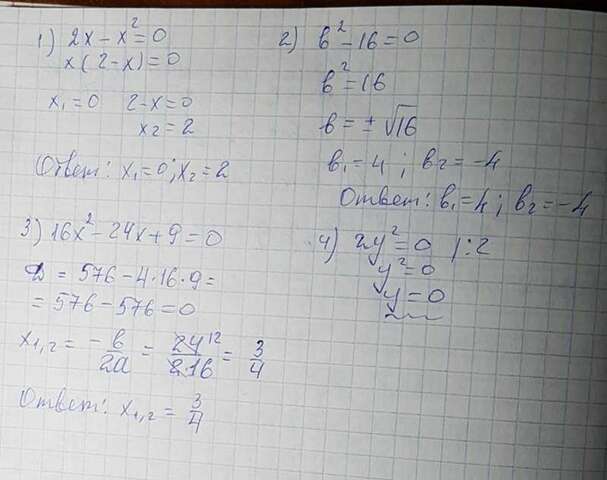 1) 2x - x² = 0
x(2-x) = 0
x₁ = 0   2-x = 0
x₂ = 2
Ответ: x₁ = 0; x₂ = 2
2) в² - 16 = 0
в² = 16
в = ± √16
в₁ = 4 ; в₂ = -4
Ответ: в₁ = 4 ; в₂ = -4
3) 16x² - 24x + 9 = 0
D = 576 - 4·16·9 =
= 576 - 576 = 0
x₁,₂ = -в/2a = 24 12/2·16 = 3/4
Ответ: x₁,₂ = 3/4
4) 2y² = 0 |:2
y² = 0
y = 0